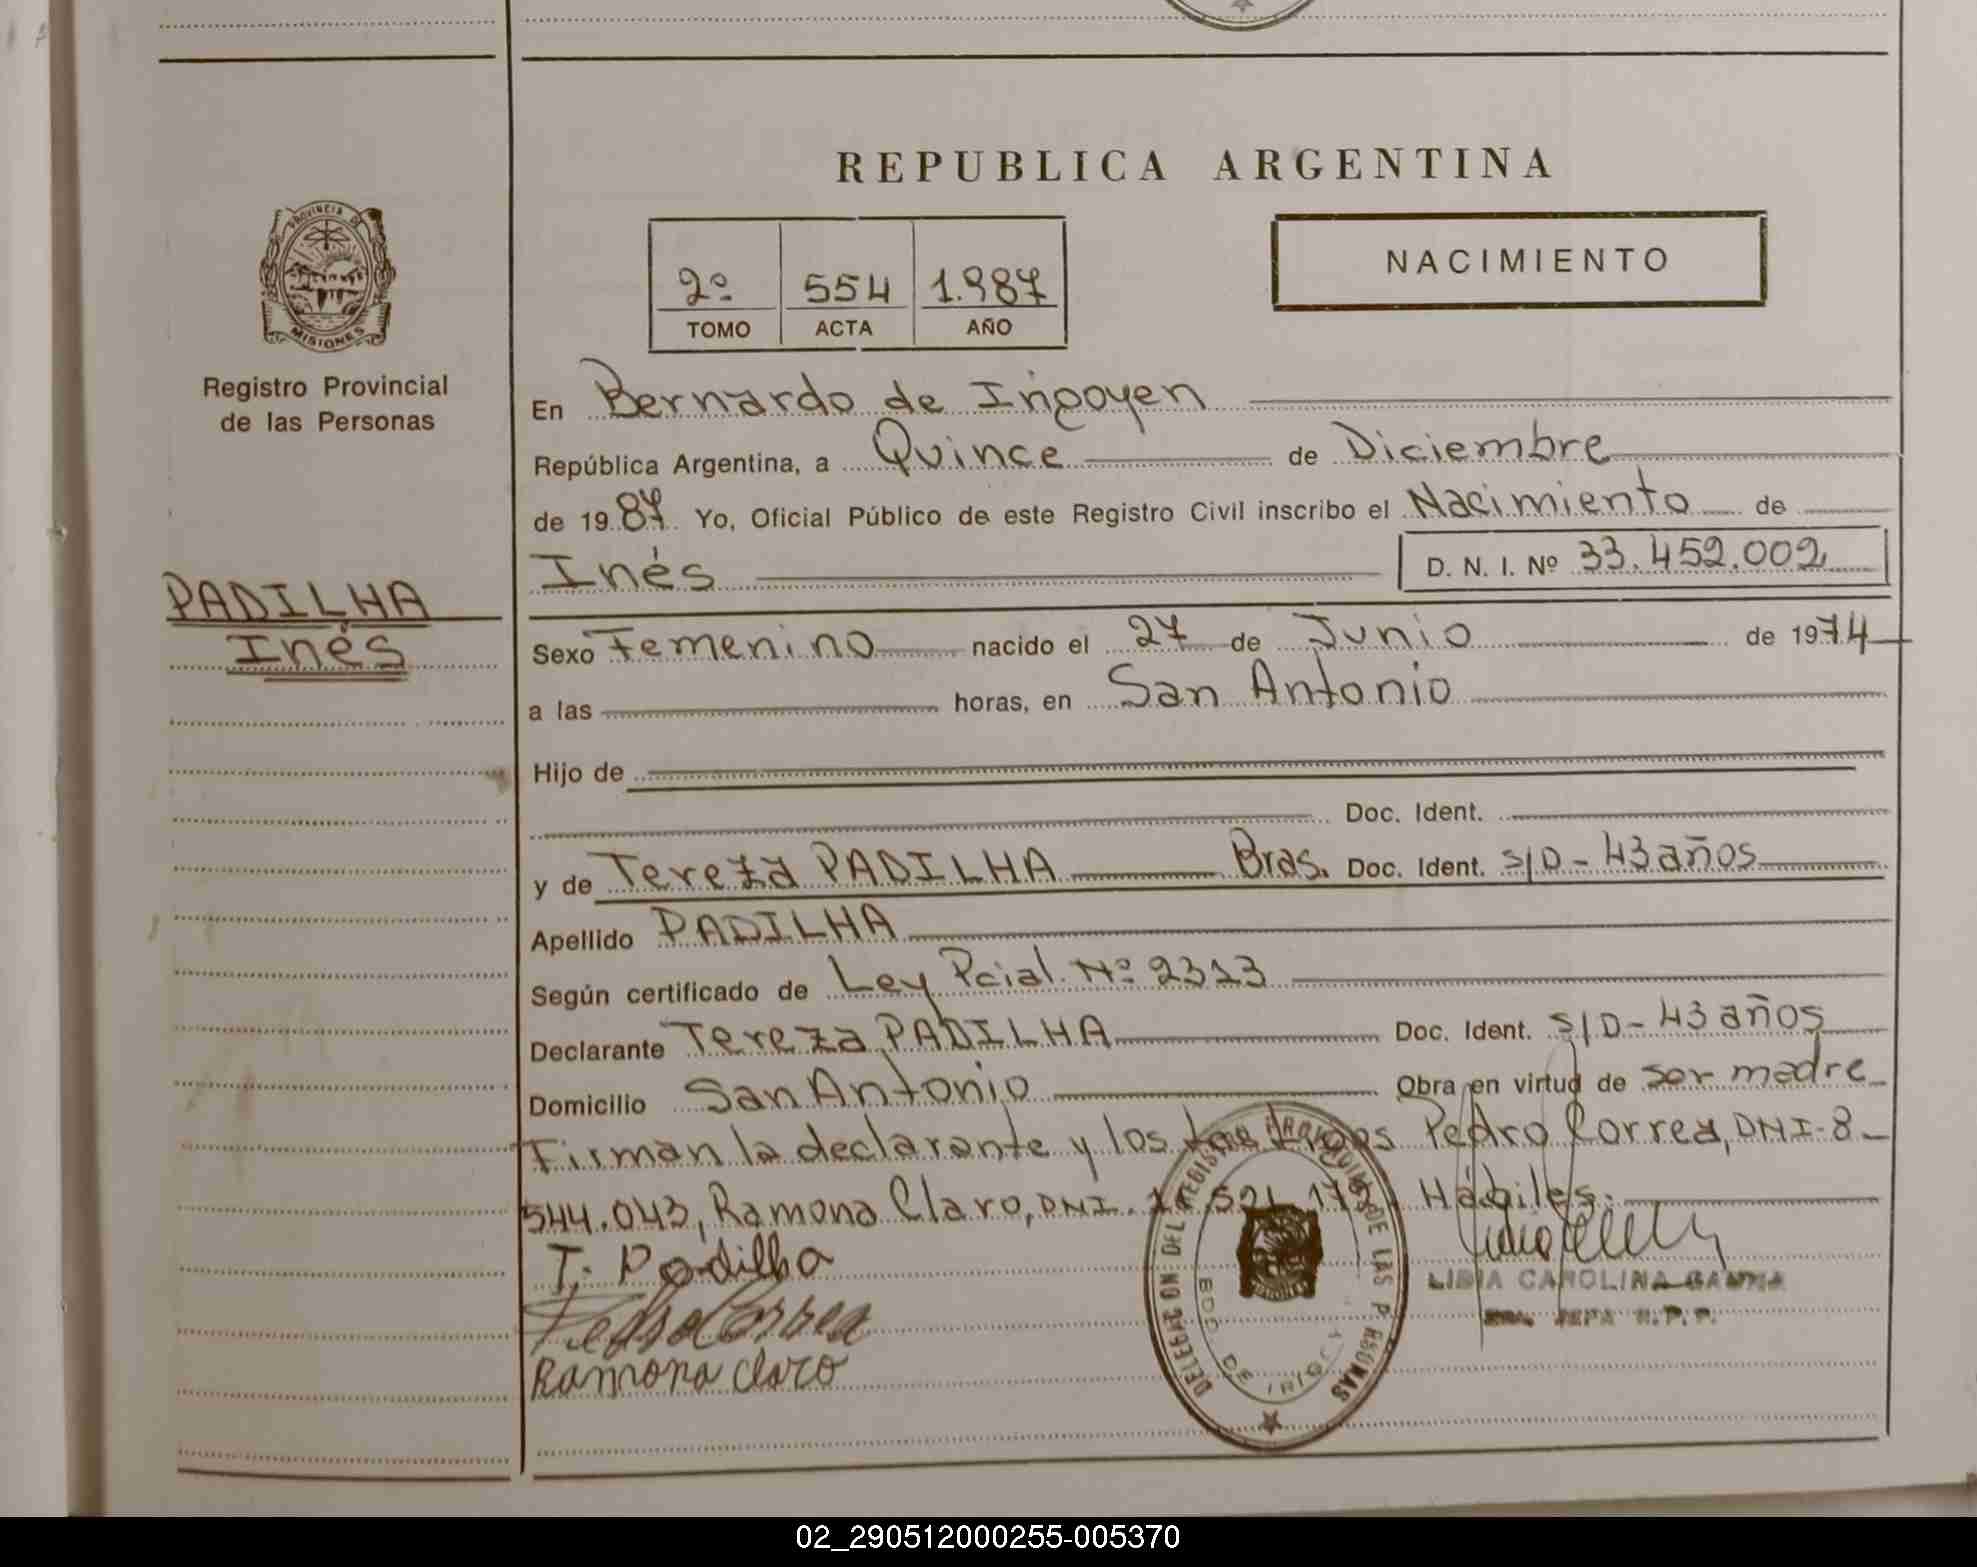 REPUBLICA ARGENTINA
PROVINCIA DE
MISIONES
Registro Provincial
de las Personas
2º 554 1.987
TOMO ACTA AÑO
NACIMIENTO
En Bernardo de Irigoyen
República Argentina, a Quince de Diciembre
de 1987 Yo, Oficial Público de este Registro Civil inscribo el Nacimiento de
Inés D. N. I. Nº 33.452.002
PADILHA
Inés
Sexo Femenino nacido el 27 de Junio de 1974
a las horas, en San Antonio
Hijo de
Doc. Ident.
y de Tereza PADILHA Bras. Doc. Ident. S/D - 43 años
Apellido PADILHA
Según certificado de Ley Pcial. Nº 2313
Declarante Tereza PADILHA Doc. Ident. S/D - 43 años
Domicilio San Antonio Obra en virtud de ser madre
Firman la declarante y los testigos Pedro Correa, DNI-8-
544.043, Ramona Claro, DNI. Hábiles.
T. Padilha
Pedro Correa
Ramona Claro
DELEGACION DEL REGISTRO PROVINCIAL DE LAS PERSONAS
BDO DE IRIGOYEN
LIDIA CAROLINA
R.P.P.
02_290512000255-005370